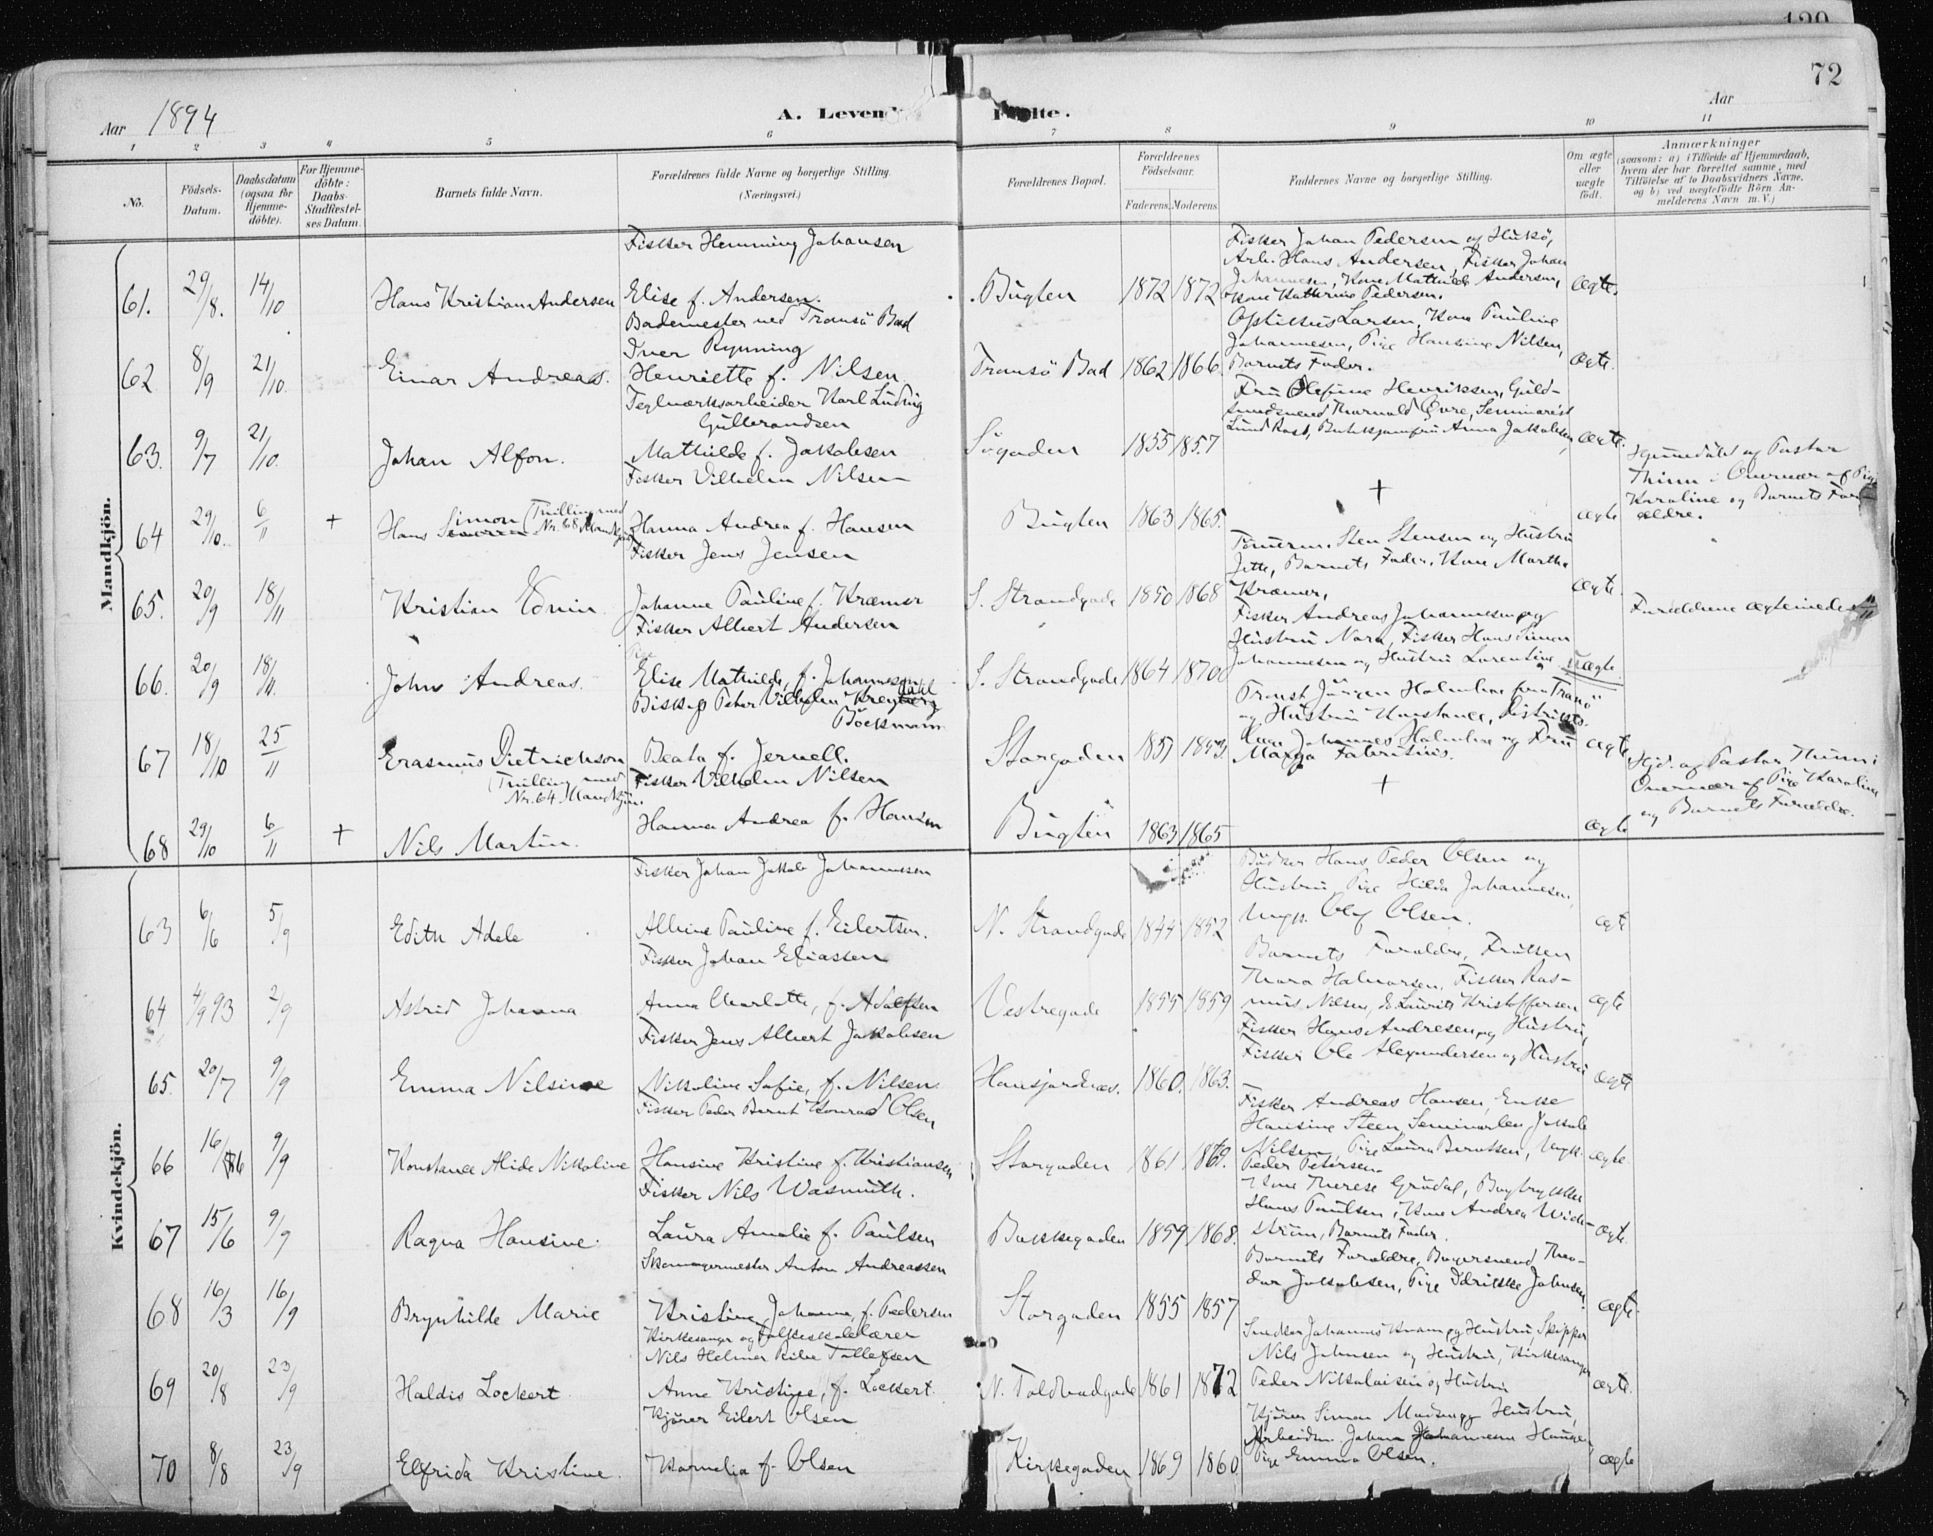 72
Aar 1894
A. Levende Fødte.
Aar
1 2 3 4 5 6 7 8 9 10 11
No.
Fødsels-Datum.
Daabsdatum (ogsaa for Hjemme-døbte).
For Hjemme-døbte: Daabs-Stadfæstel-ses Datum.
Barnets fulde Navn.
Forældrenes fulde Navne og borgerlige Stilling. (Næringsvei.)
Forældrenes Bopæl.
Forældrenes Fødselsaar.
Faderens. Moderens.
Faddernes Navne og borgerlige Stilling.
Om ægte eller uægte født.
Anmærkninger
(saasom: a) i Tilfælde af Hjemmedaab, hvem der har forrettet samme, med Tilføielse af to Daabsvidners Navne, og b) ved uægtefødte Børn An-melderens Navn m. V.)
Mandkjön.
Fisker Hemming Johansen
61. 29/8. 14/10 Hans Kristian Andersen Elise f. Andersen. Bugten 1872 1872
Fisker Johan Pedersen og Hustru,
Arb. Hans Andersen, Fisker Johan
Johannesen, Kone Mathilde Andersen,
Kone Kathrine Pedersen. ægte.
Bademester ved Tromsö Bad
Iver Rynning
62 8/9 21/10. Einar Andreas. Henriette f. Nilsen Tromsö Bad 1862 1866.
Larsen, Kone Pauline
Johannesen, Pige Hansine Nilsen,
Barnets Fader. ægte.
Teglværksarbeider Karl Ludvig
Gulbrandsen
63. 9/7 21/10. Johan Alfon. Mathilde f. Jakobsen Sögaden 1855 1857
Fru Olefine Henriksen, Guld-
smedsvend Tharvald Övre, Seminarist
Lund Rost, Anna Jakobsen, ægte.
Fisker Vilhelm Nilsen
64 29/10. 6/11 + Hans Simon Tvilling med Nr. 68 Mandkjön Hanna Andrea f. Hansen Bugten 1863 1865. + ægte
Hjemmedöbt af Pastor
Thinn i Overvær af Pige
Karoline og Barnets For-
ældre.
Fisker Jens Jensen
65. 20/9 18/11 Kristian Edvin Johanne Pauline f. Kræmer S. Strandgade 1850 1868
Tömrm. Sten Stensen og Hustru
Jette, Barnets Fader, Kone Martha
Kræmer, ægte.
Fisker Albert Andersen
66. 20/9 18/11. Johns Andreas. Elise Mathilde, f. Johannesen S. Strandgade 1864 1870
Fisker Andreas Johannesen og
Hustru Nora, Fisker Hans Simon
Johannesen og Hustru Larentine uægte.
Forældrene ægteviede 11/11
Biskop Peter Vilhelm Kreydahl
Böckmann
67 18/10 25/11 Erasmus Dietrichson Beata f. Jervell. Storgaden 1851 1853.
Provst Jürgen Holmboe fra Tranö
og Hustru Konstance, Distrikts-
læge Johannes Holmboe og Fru
Marga Fabritius. ægte
Fisker Vilhelm Nilsen
(Tvilling med Nr. 64 Mandkjön.
68 29/10 6/11 + Nils Martin. Hanna Andrea f. Hansen Bugten 1863 1865 + ægte
Hjd. af Pastor Thinn i
Overvær af Pige Karoline
og Barnets Forældre.
Kvindekjön.
Fisker Johan Jakob Johannessen
63 6/6 5/9 Edith Adele Albine Pauline f. Eilertsen. N. Strandgade 1844 1852
Bödker Hans Peder Olsen og
Hustru, Pige Hilda Johannesen,
Ungk. Oluf Olsen. ægte
Fisker Johan Eliassen
64 4/9 93 2/9 Astrid Johanna Anna Charlotte, f. Adolfsen Vestregade 1855 1859
Barnets Forældre, Frøken
Thora Halvorsen, Fisker Ras-
mus Nilsen, Laurits Kristoffersen ægte
Fisker Jens Albert Jakobsen
65. 20/7 9/9 Emma Nilsine Nikoline Sofie, f. Nilsen Hansjordnæs. 1860. 1863.
Fisker Hans Andresen og Hustru,
Fisker Ole Alexandersen og Hustru ægte
Fisker Peder Bernt Konrad Olsen
66 16/86 9/9 Konstance Alide Nikoline Hansine Kristine f. Kristiansen Storgaden 1861 1869.
Fisker Andreas Hansen, Enke
Hansine Steen, Jakob
Nilsen, Pige Laura Berntsen, Ungk.
Peder Petersen. ægte.
Fisker Nils Wasmuth.
67 15/6 9/9 Ragna Hansine. Laura Amalie f. Paulsen Bakkegaden 1859 1868.
Kone Therese Grödal, Bogtrykker
Hans Paulsen, Kone Andrea Wick-
ström, Barnets Fader. ægte.
Skomagermester Anton Andreassen
68 16/3 16/9 Brynhilde Marie Kristine Johanne, f. Pedersen Storgaden 1855 1857
Barnets Forældre, Bagersvend Theo-
dor Jakobsen, Pige Idrikke Johnsen. ægte.
Kirkesanger og Folkeskolelærer
Nils Helmer Riber Tollefsen
69 20/8 23/9 Haldis Lockert Anne Kristine, f. Lockert N. Toldbodgade 1861 1872
Snedker Johannes Kram og Hustru, Skipper
Nils Johnsen og Hustru, Kirkesanger
Peder Nikolaisen og Hustru ægte.
Kjörer Eilert Olsen
70 8/8 23/9 Elfrida Kristine. Kornelia f. Olsen Kirkegaden 1869 1860
Kjörer Simon Madsen og Hustru,
Arbeider Johan Johannesen Haugen,
Pige Emma Olsen. ægte